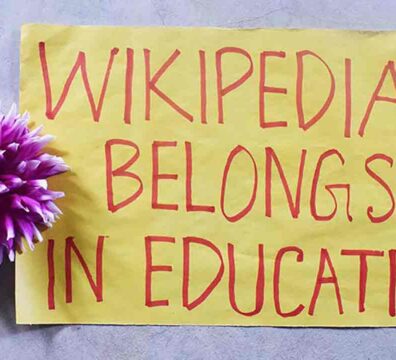 WIKIPEDIA
BELONGS
IN EDUCATI